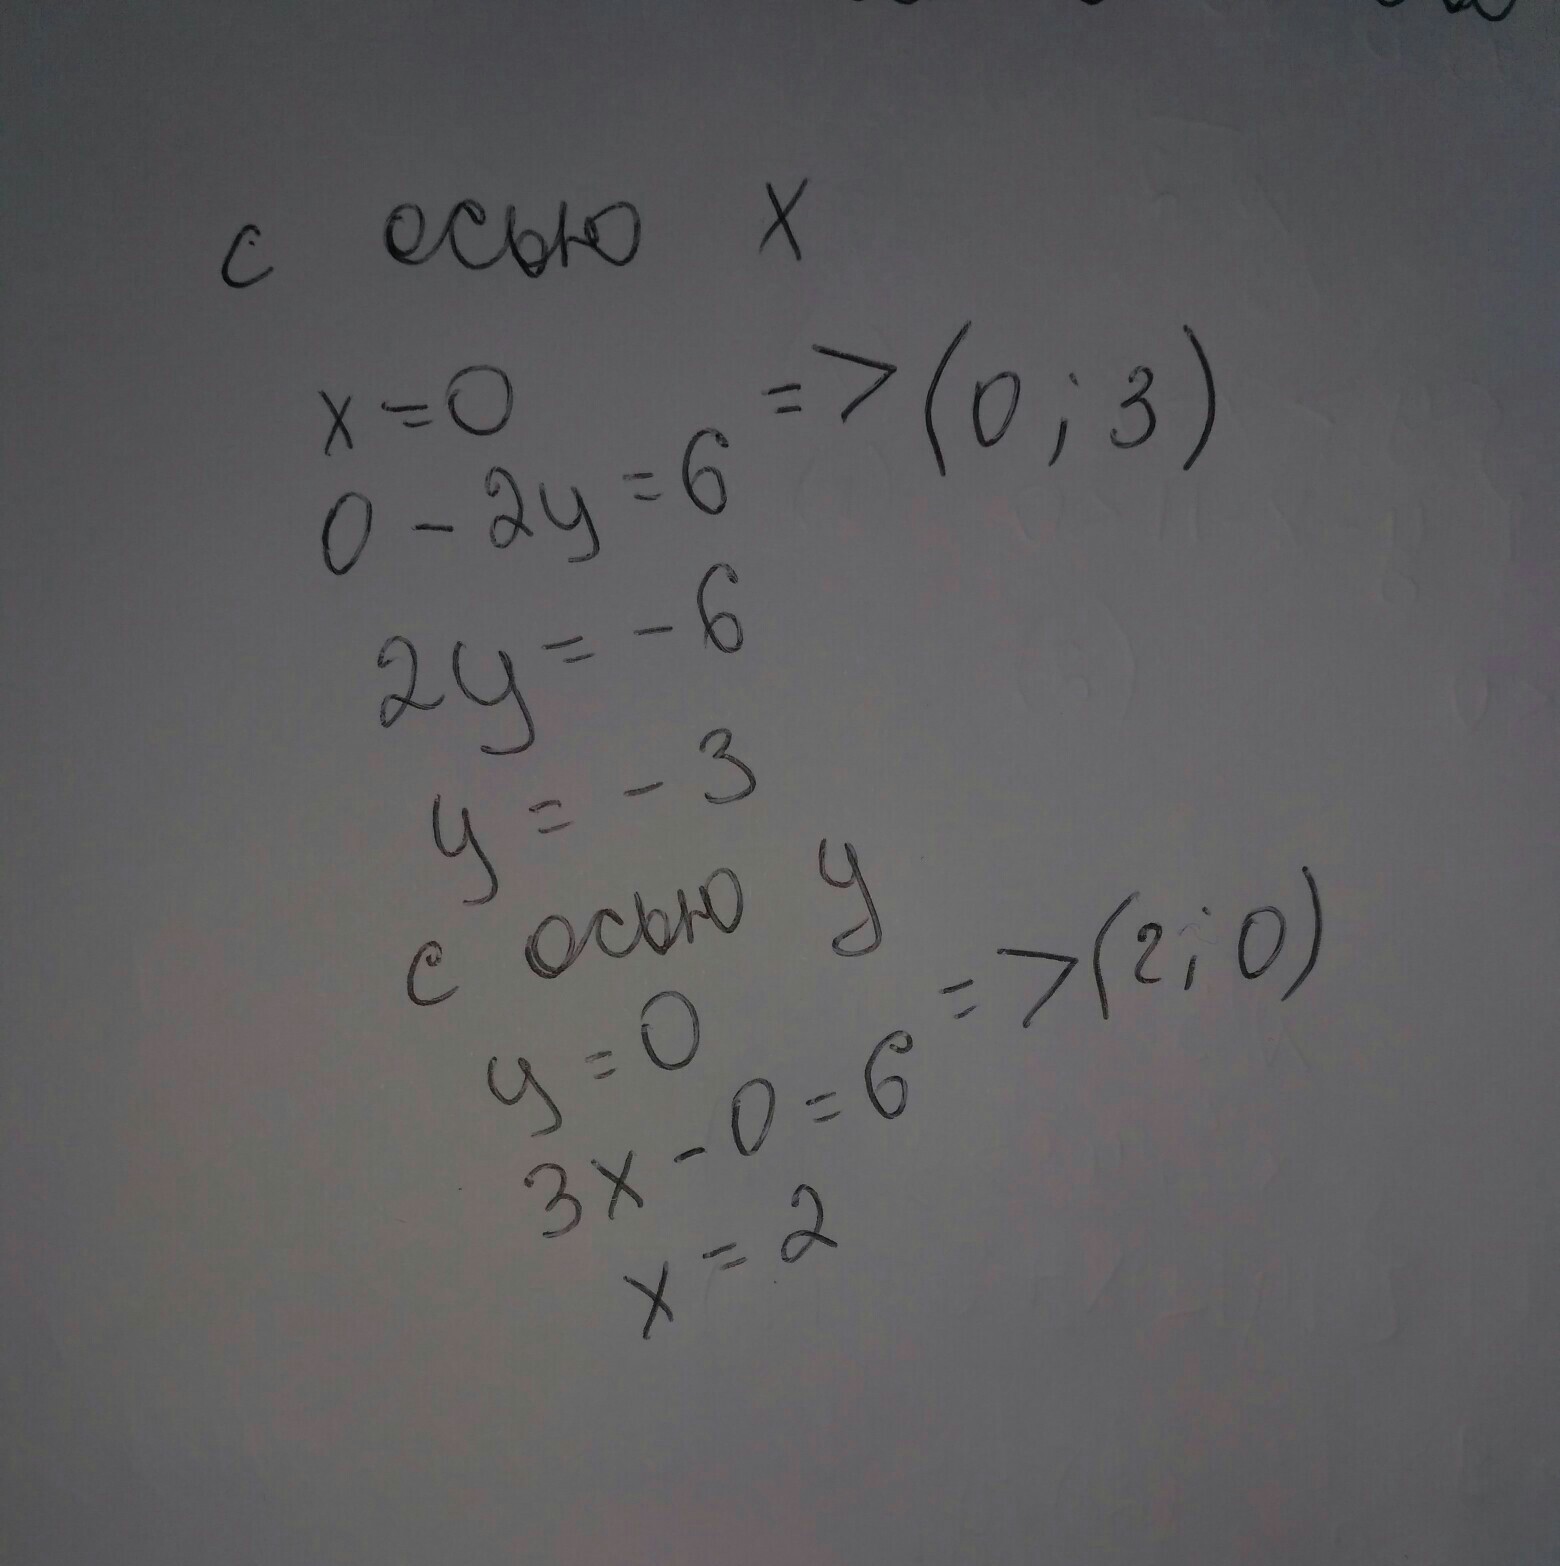 с осью x
x=0 => (0; 3)
0 - 2y = 6
2y = -6
y = -3
с осью y
y = 0 => (2; 0)
3x - 0 = 6
x = 2